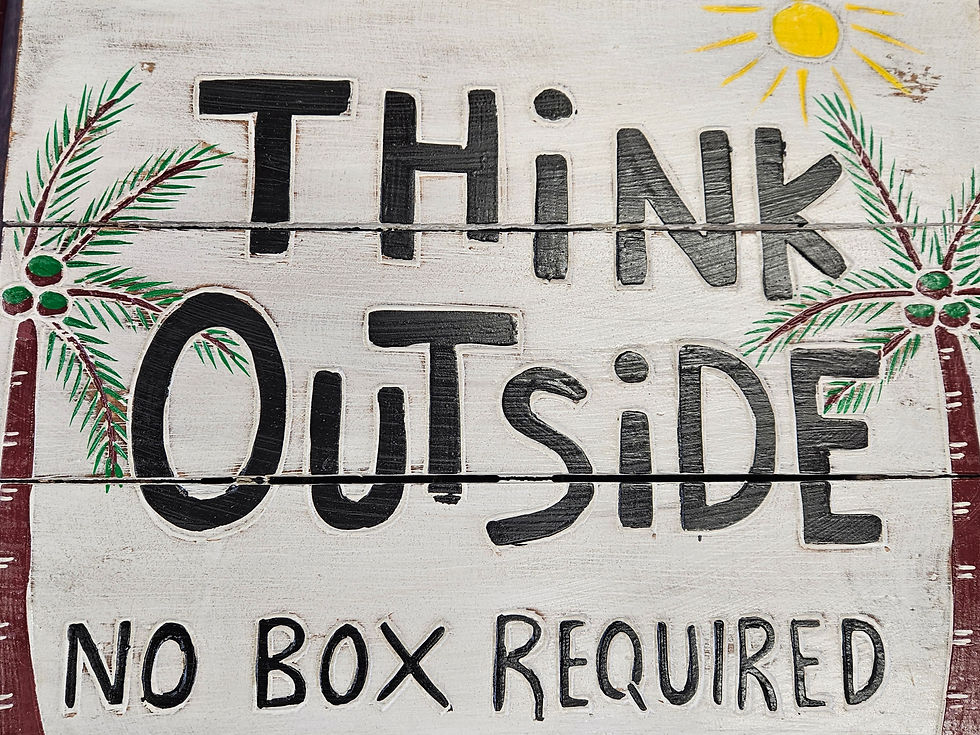 THiNK
OUTSiDE
NO BOX REQUIRED